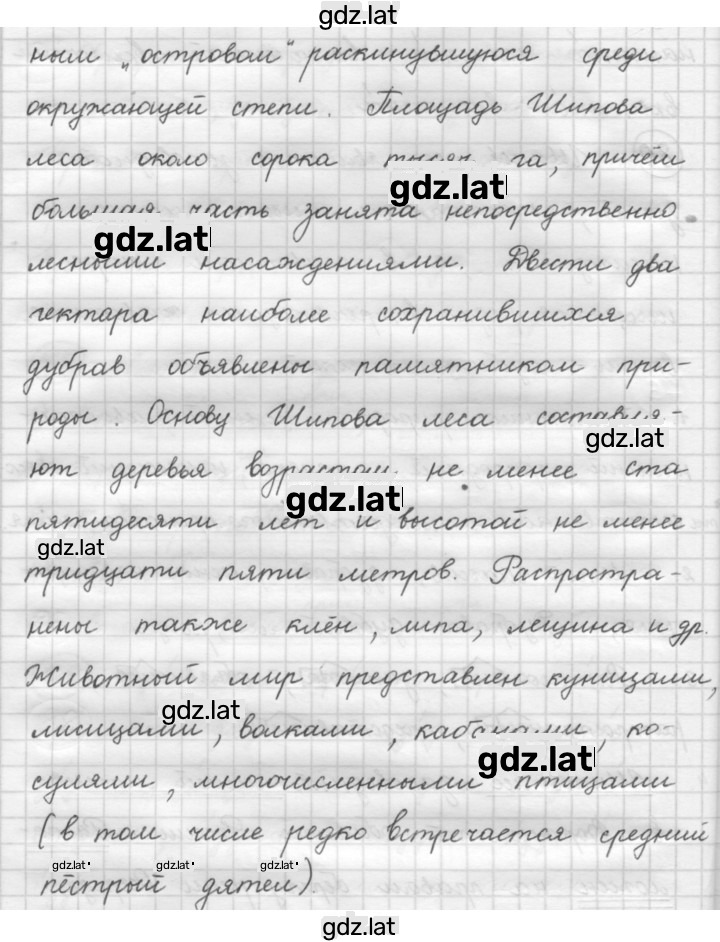 gdz.lat
ным „островом" раскинувшуюся среди
окружающей степи. Площадь Шипова
леса около сорока тысяч га, причём
gdz.lat
большая часть занята непосредственно
gdz.lat
лесными насаждениями. Двести два
гектара наиболее сохранившихся
дубрав объявлены памятником при-
роды. Основу Шипова леса составля-
gdz.lat
ют деревья возрастом не менее ста
gdz.lat
пятидесяти лет и высотой не менее
gdz.lat
тридцати пяти метров. Распростра-
нены также клён, липа, лещина и др.
Животный мир представлен куницами,
gdz.lat
лисицами, волками, кабанами, ко-
gdz.lat
сулями, многочисленными птицами
(в том числе редко встречается средний
gdz.lat gdz.lat gdz.lat
пёстрый дятел)
gdz.lat